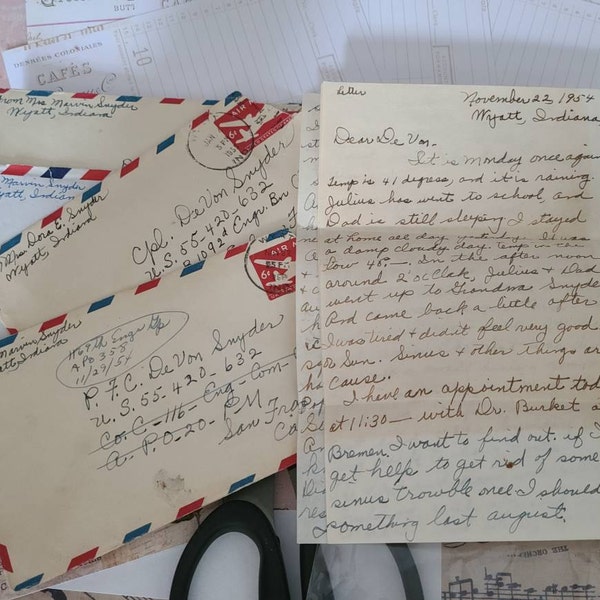 DENRÉES COLONIALES
CAFÉS
10
From Mrs Marvin Snyder
Wyatt, Indiana
Marvin Snyder
Wyatt, Indian
Mrs. Dora E. Snyder
Wyatt, Indiana
Marvin Snyder
Wyatt Indiana
Cpl. DeVon Snyder
U.S. 55-420-632
1092 Engr Bn C
AIR
6¢
1169th Engr Gp
APO 358
11/29/54
P.F.C. DeVon Snyder
U.S. 55-420-632
Co. C-116-Eng-Com-
A.P.O-20-P.M
San Fra
Ca
Letter
November 22, 1954
Wyatt, Indiana
Dear De Von-
It is Monday once again
Temp is 41 degress, and it is raining.
Julius has went to school, and
Dad is still sleeping. I stayed
at home all day yesterday. It was
a damp cloudy day. Temp in the
low 40-. In the after noon
around 2 o'Clok, Julius & Dad
went up to Grandma Snyder
And came back a little after
I was tired & didn't feel very good
Sun. Sinus & other things are
cause.
I have an appointment tod
at 11:30- with Dr. Burket a
Bremen. I want to find out if I
get help to get rid of some
sinus trowble one! I should
something last august.